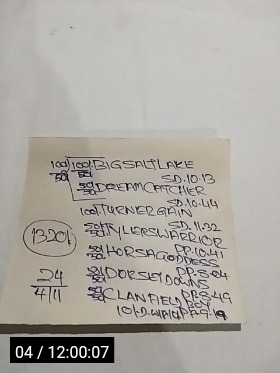 100/100 BIGSALTLAKE
50 50 SD.10.13
50 DREAMCATCHER
50 SD.10.44
100 TURNERGAIN
SD.11.32
50 TYLERSWARRIOR
50 PP.10.41
HORSAGODDESS
PP.8.04
50 DORSETDOWNS
24 PP.8.49
4/11 CLANFIELD BOY
PP.9.19
04 / 12:00:07